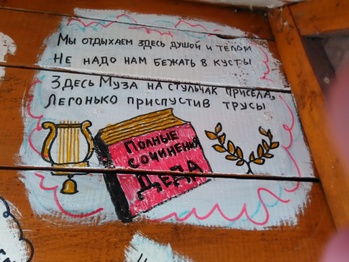 Мы отдыхаем здесь душой и телом
Не надо нам бежать в кусты
Здесь Муза на стульчак присела,
Легонько приспустив трусы
Полные
сочинения
Деда